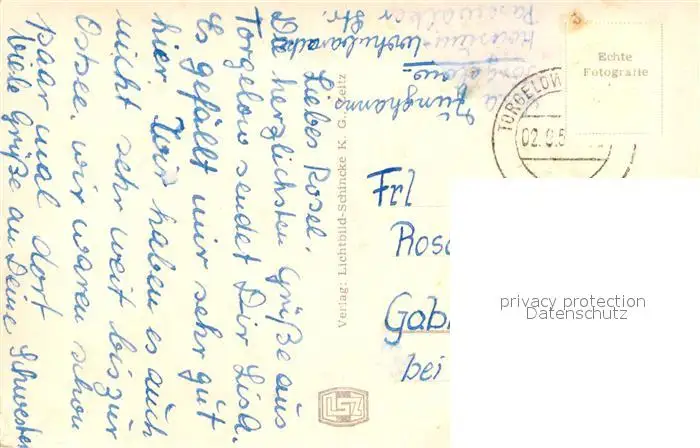 Liebes Rosel,
Die herzlichsten Grüße aus
Torgelow sendet Dir Lisa.
Es gefällt mir sehr gut
hier. Wir haben es auch
nicht sehr weit bis zur
Ostsee, wir waren schon
paar mal dort
Viele Grüße an Deine Schwester
Torgelow
Str.
Verlag: Lichtbild-Schincke K. G., Zeitz
LSZ
Echte
Fotografie
TORGELOW
02.
Frl
Ros
Gab
bei
privacy protection
Datenschutz